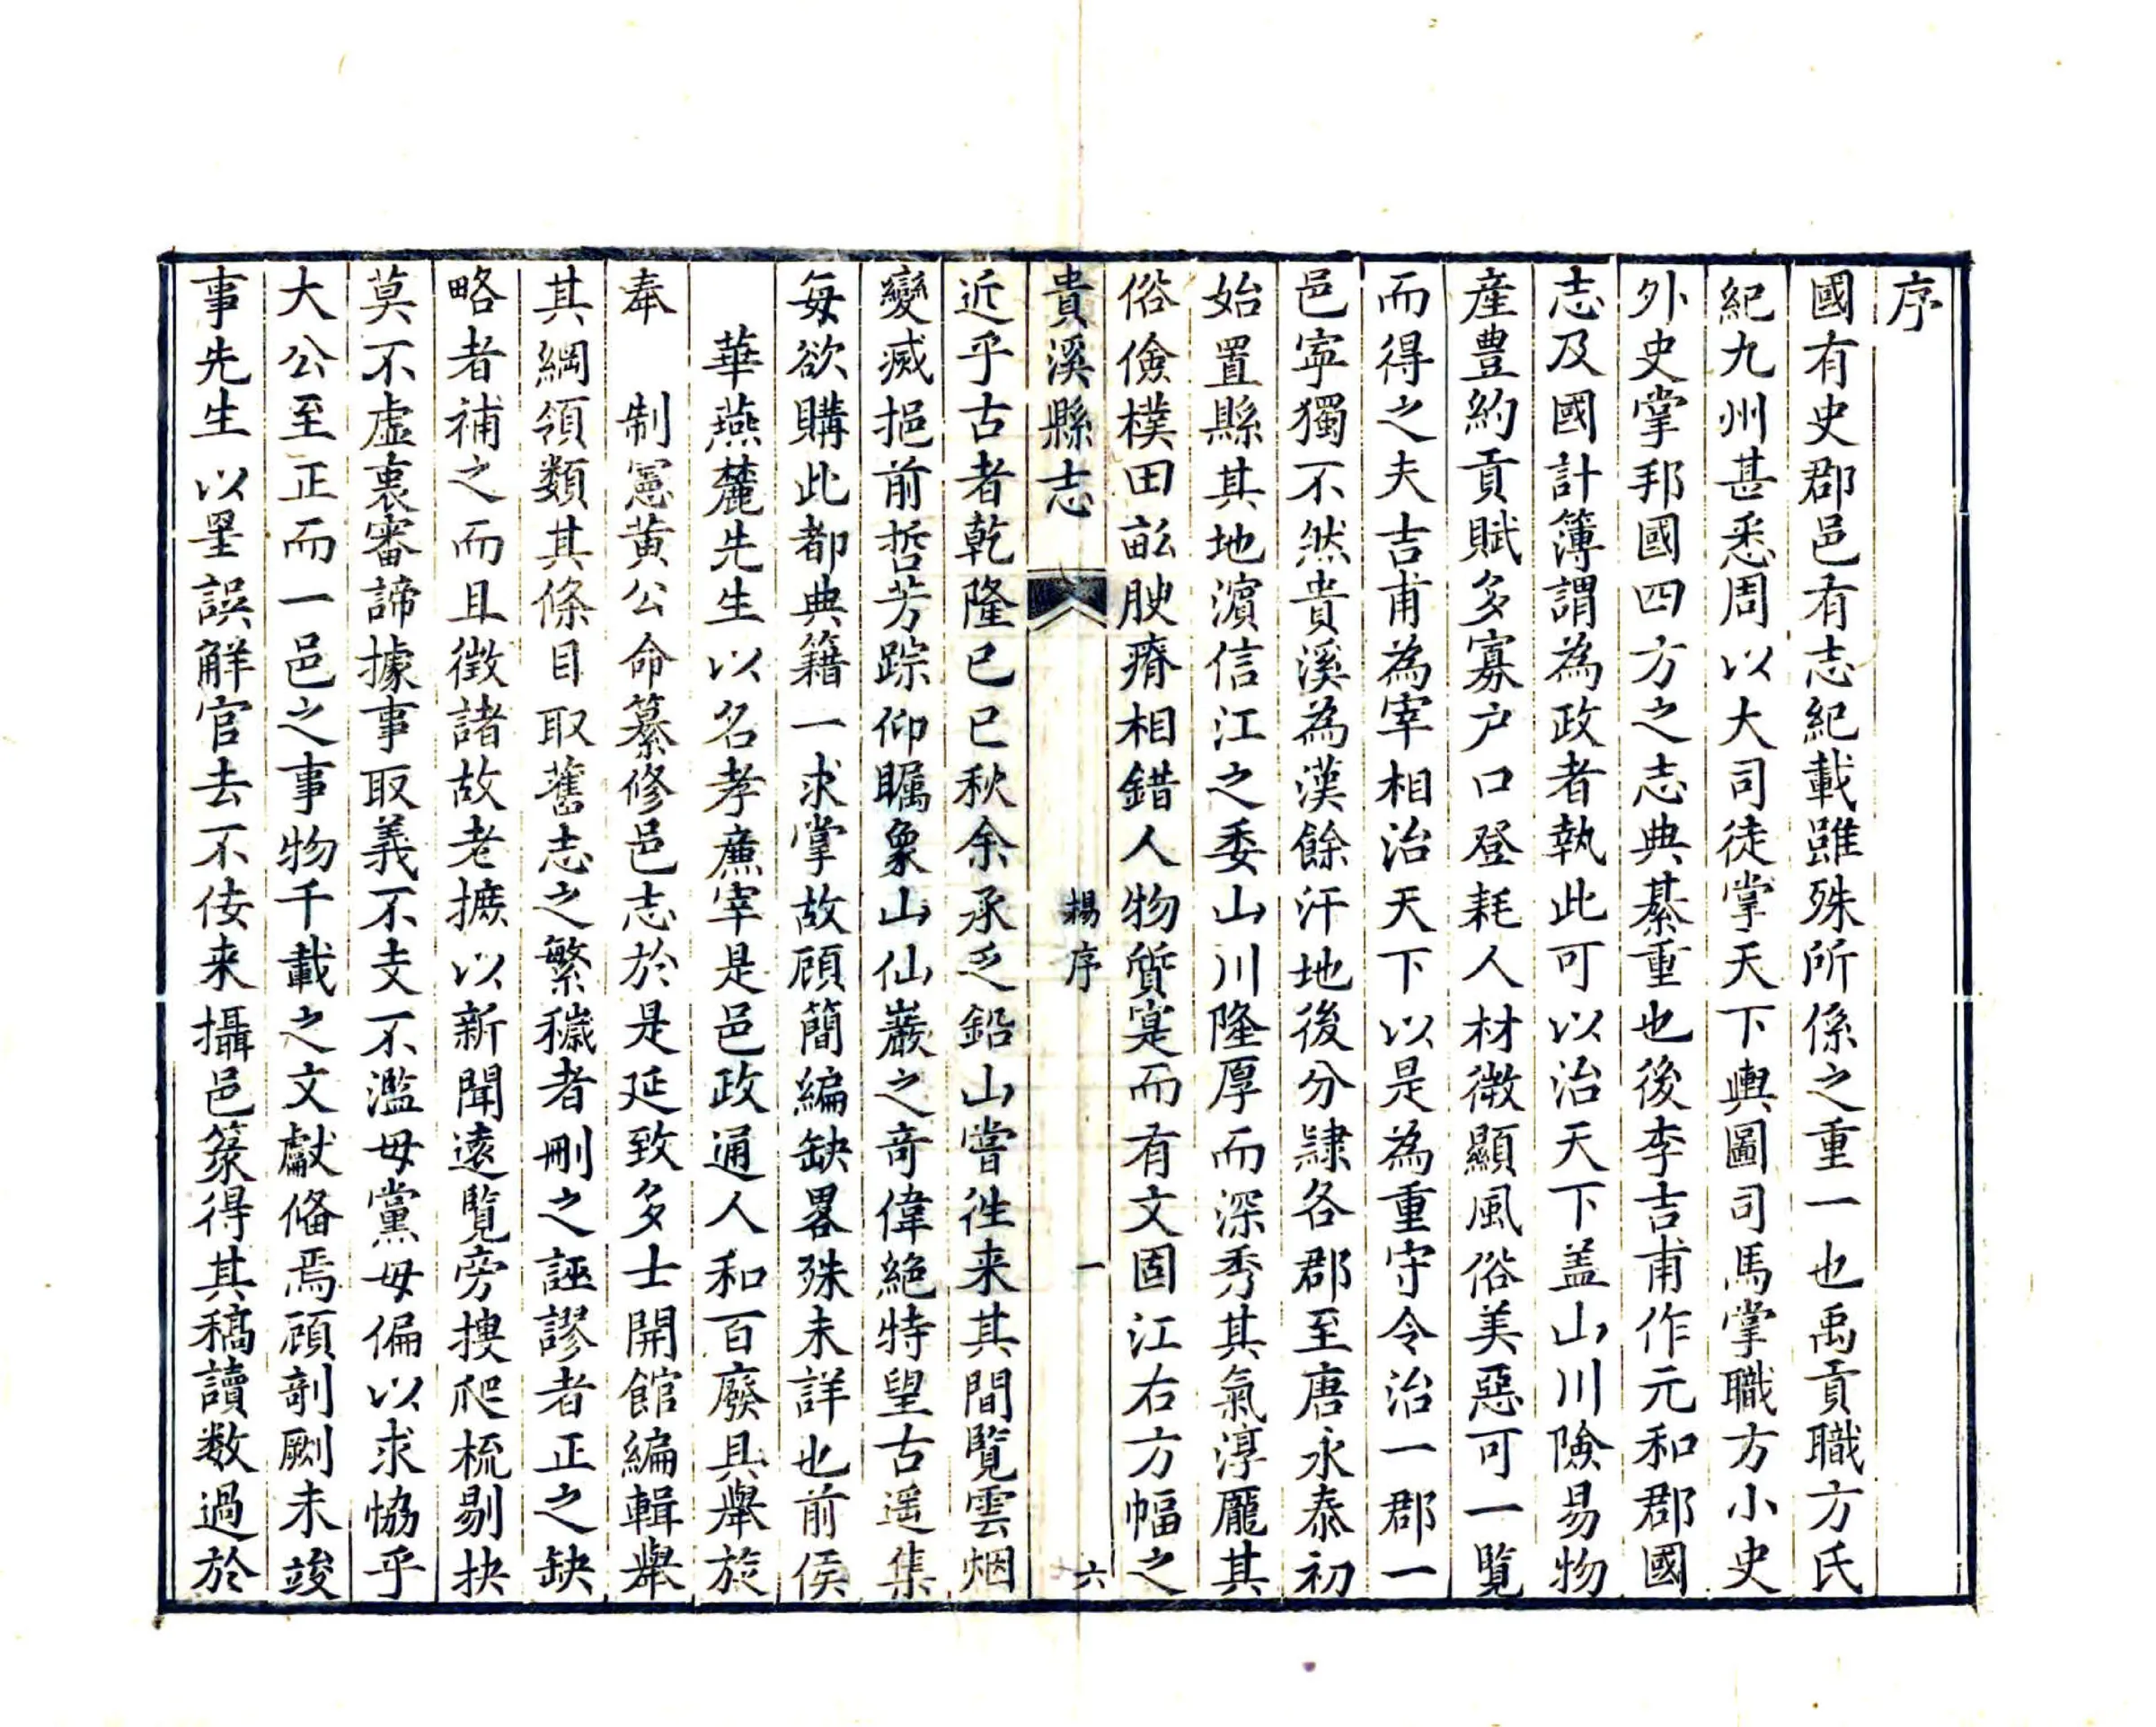 序
國有史郡邑有志紀載雖殊所係之重一也禹貢職方氏
紀九州甚悉周以大司徒掌天下輿圖司馬掌職方小史
外史掌邦國四方之志典綦重也後李吉甫作元和郡國
志及國計簿謂為政者執此可以治天下盖山川險易物
產豊約貢賦多寡户口登耗人材微顯風俗美惡可一覧
而得之夫吉甫為宰相治天下以是為重守令治一郡一
邑寜獨不然貴溪為漢餘汗地後分隸各郡至唐永泰初
始置縣其地濵信江之委山川隆厚而深秀其氣淳龎其
俗儉樸田畝腴瘠相錯人物質寔而有文固江右方幅之
貴溪縣志 楊序 一 六
近乎古者乾隆已已秋余承乏鉛山嘗徃来其間覧雲烟
變烕挹前哲芳踪仰矚象山仙巖之奇偉絶特望古遥集
每欲購此都典籍一求掌故顧簡編缺畧殊未詳也前侯
華燕麓先生以名孝亷宰是邑政通人和百廢具舉於
奉 制憲黄公命纂修邑志於是延致多士開館編輯舉
其綱領類其條目取舊志之繁穢者刪之誣謬者正之缺
略者補之而且徴諸故老摭以新聞遠覧旁搜爬梳剔抉
莫不虚衷審諦據事取義不支不濫毋黨毋偏以求恊乎
大公至正而一邑之事物千載之文獻俻焉顧剞劂未竣
事先生以罣誤解官去不佞来攝邑篆得其稿讀数過於